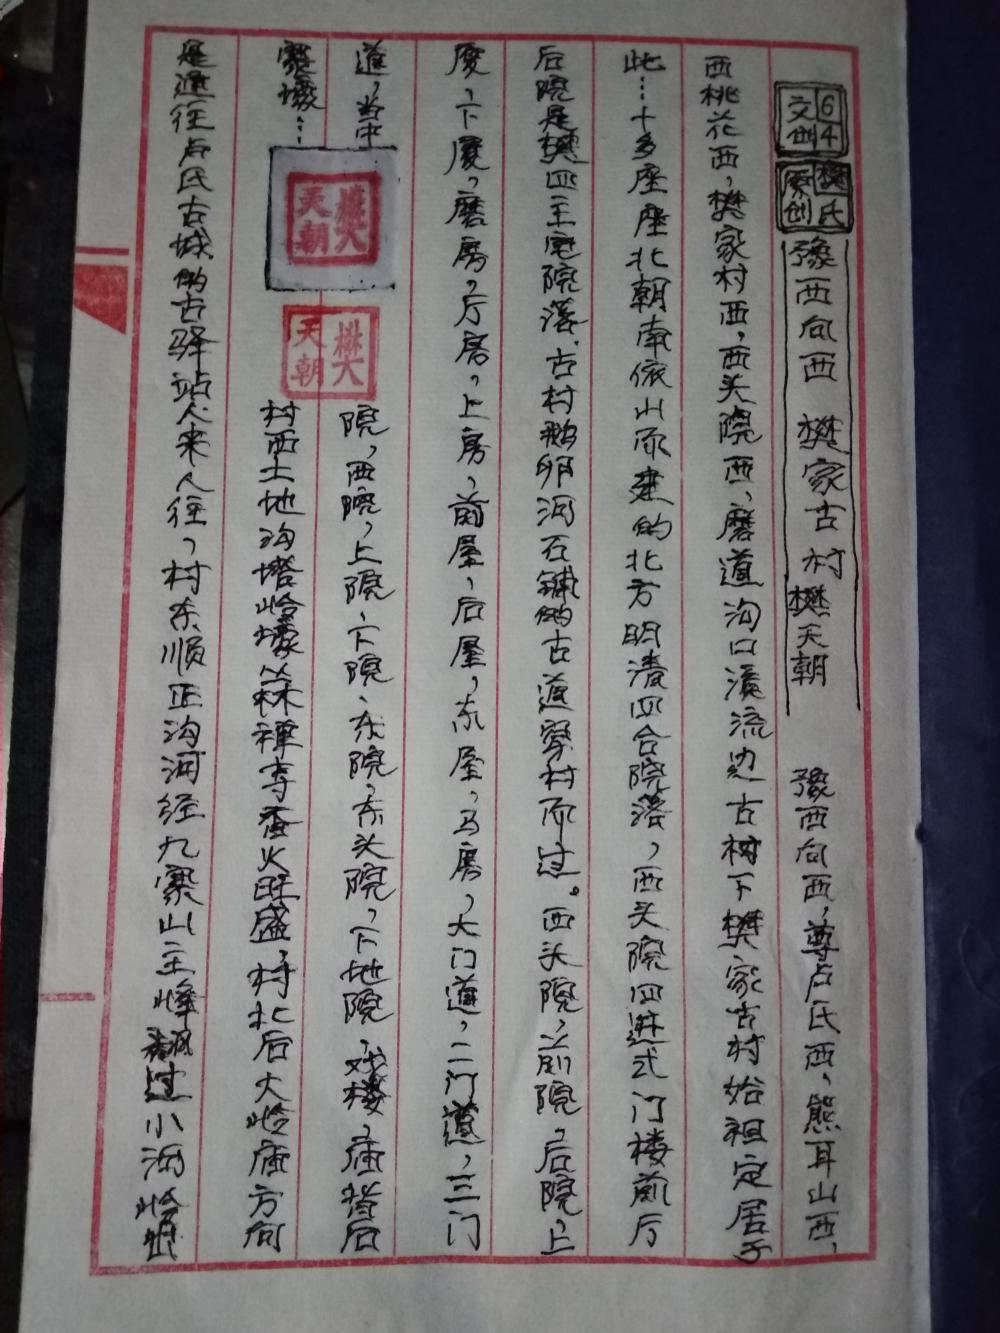 64文创
樊氏原创
豫西向西 樊家古村 樊天朝
豫西向西，尊卢氏西，熊耳山西，
西桃花西，樊家村西，西头院西，磨道沟口溪流边古树下樊家古村始祖定居于
此…十多座座北朝南依山而建的北方明清四合院落，西头院四进式门楼前厅
后院是樊四主宅院落.古村鹅卵河石铺的古道穿村而过。西头院，前院，后院，上
厦，下厦，磨房，厅房，上房，前屋，后屋，东屋，马房，大门道，二门道，三门
道，当中
院，西院，上院，下院，东院，东头院，下地院，戏楼，庙塔后
村西土地沟塔岭壕丛林禅寺香火旺盛，村北后大岭庙方向
是通往卢氏古城的古驿站人来人往，村东顺正沟河经九寨山主峰翻过小河岭
樊大天朝
樊大天朝